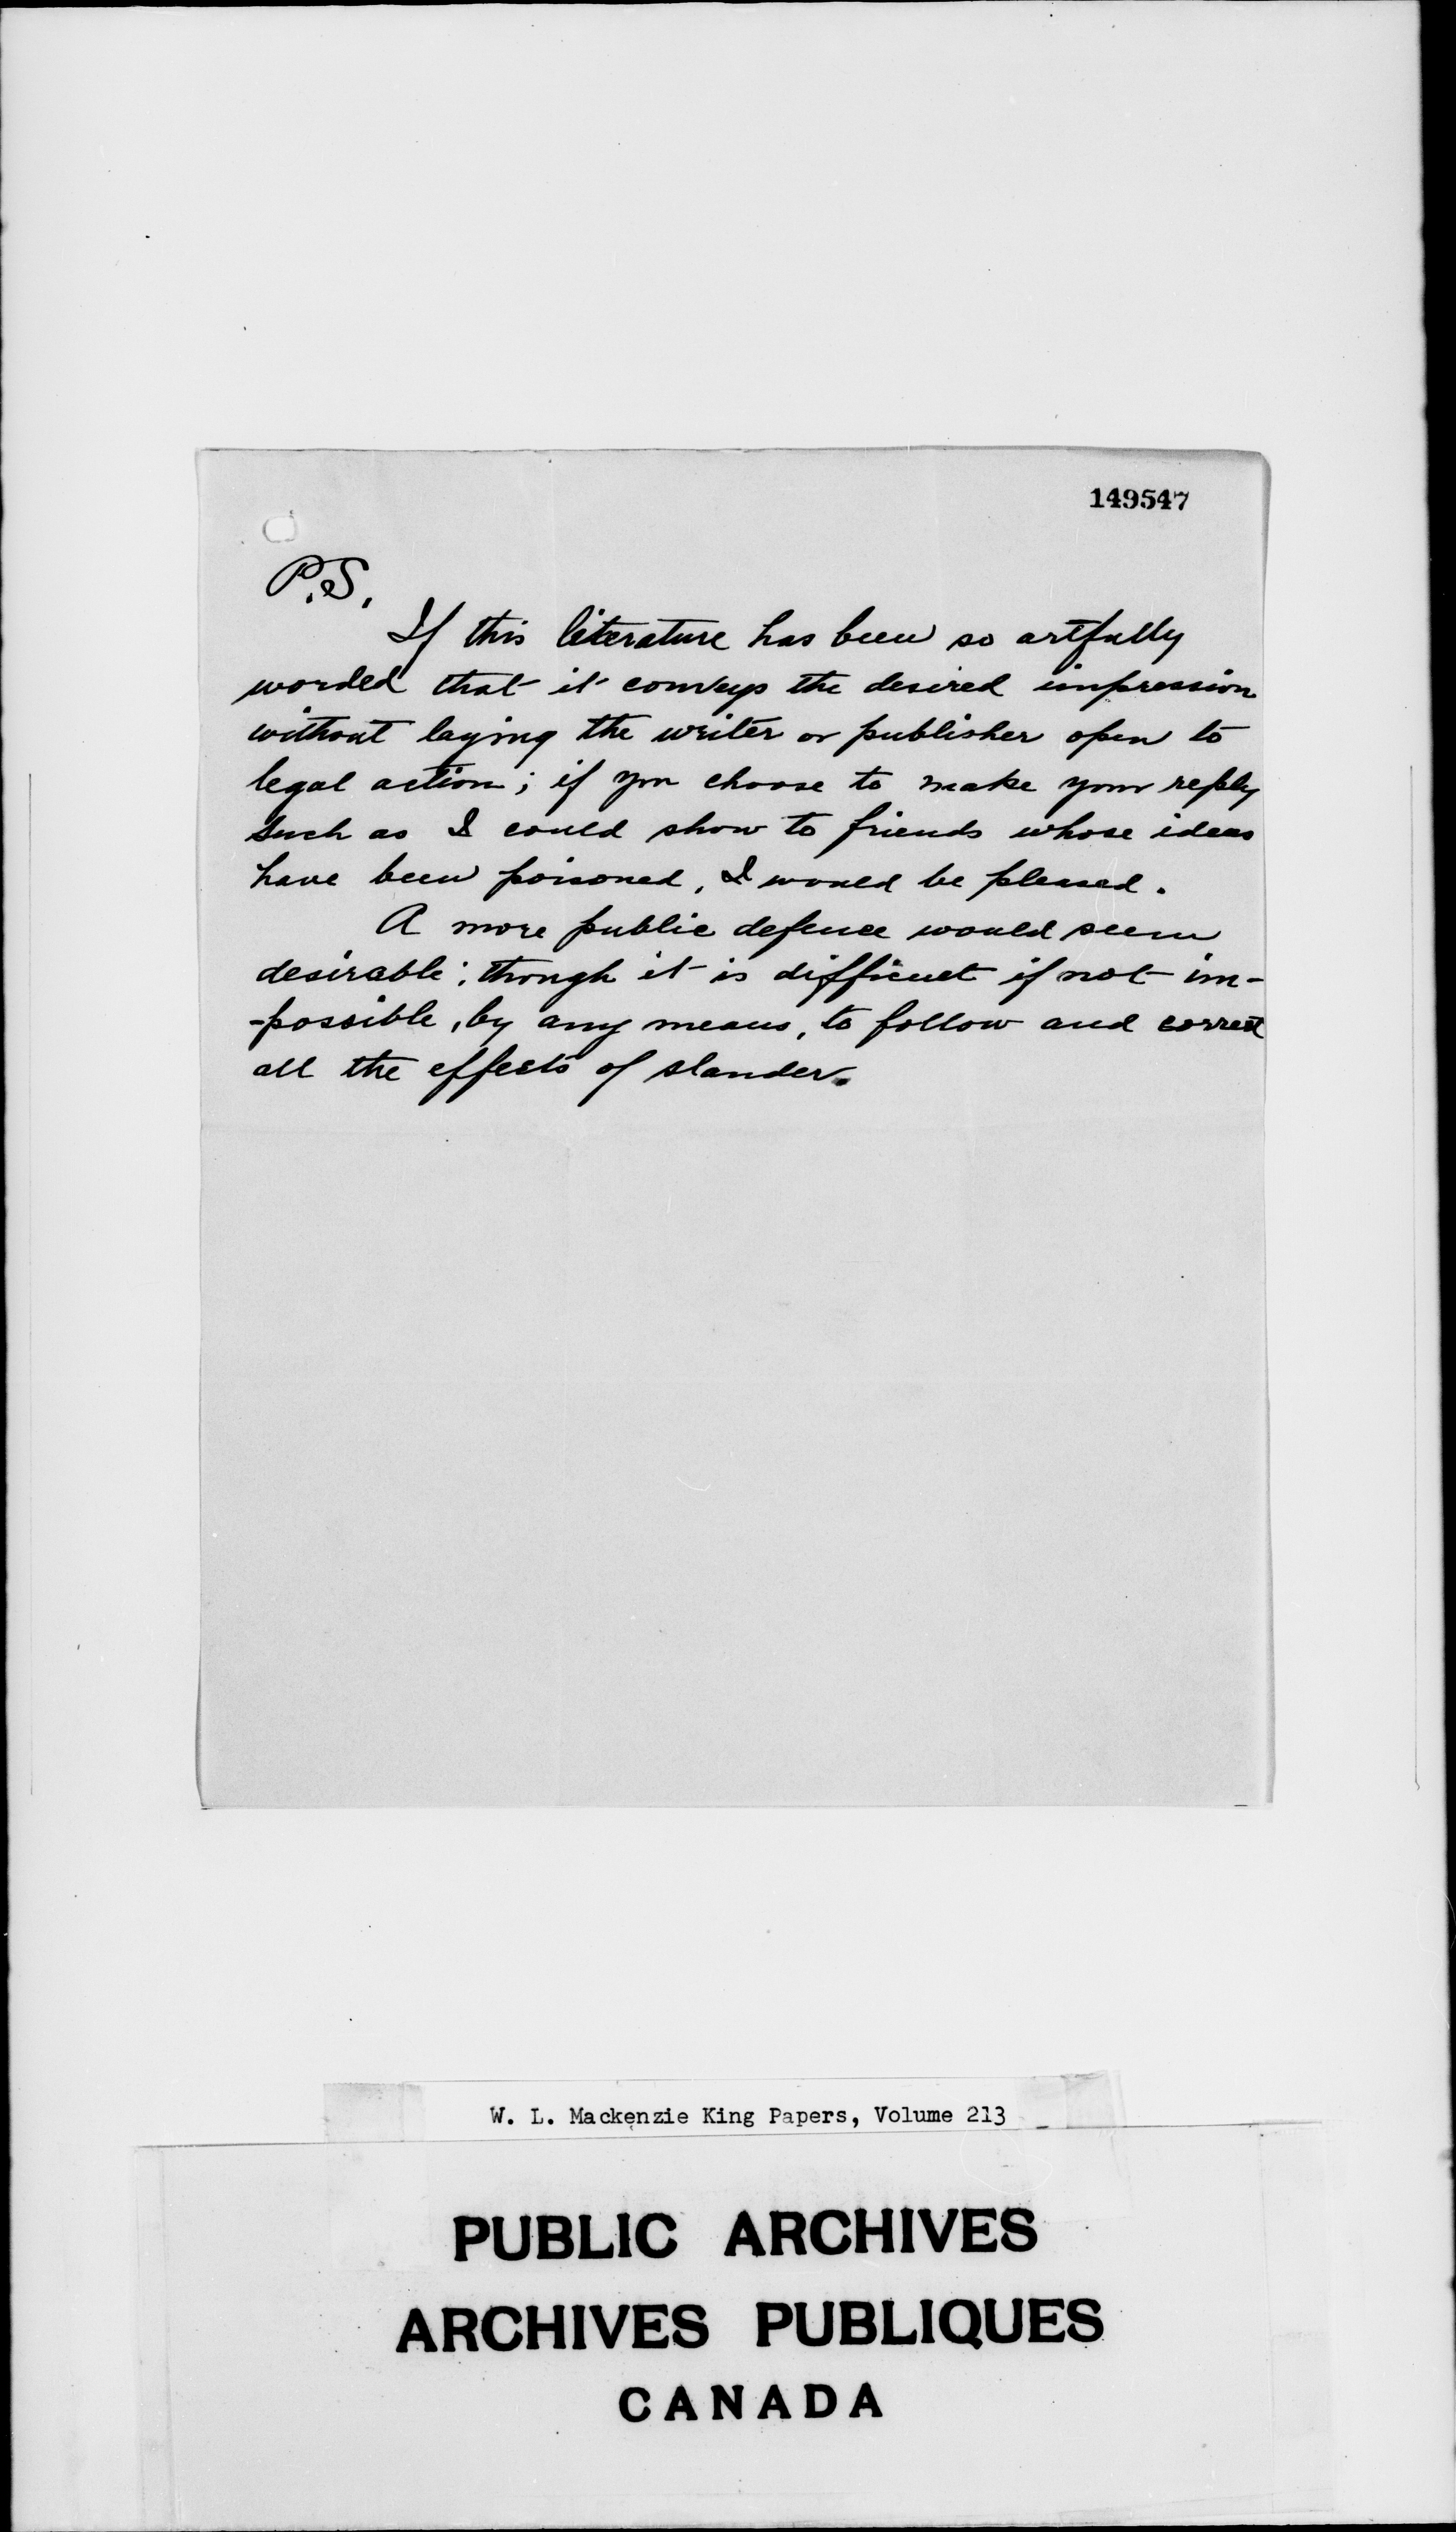 149547
P.S.
If this literature has been so artfully
worded that it conveys the desired impression
without laying the writer or publisher open to
legal action; if you choose to make your reply
such as I could show to friends whose ideas
have been poisoned, I would be pleased.
A more public defence would seem
desirable; though it is difficult if not im-
-possible, by any means, to follow and correct
all the effects of slander.
W. L. Mackenzie King Papers, Volume 213
PUBLIC ARCHIVES
ARCHIVES PUBLIQUES
CANADA